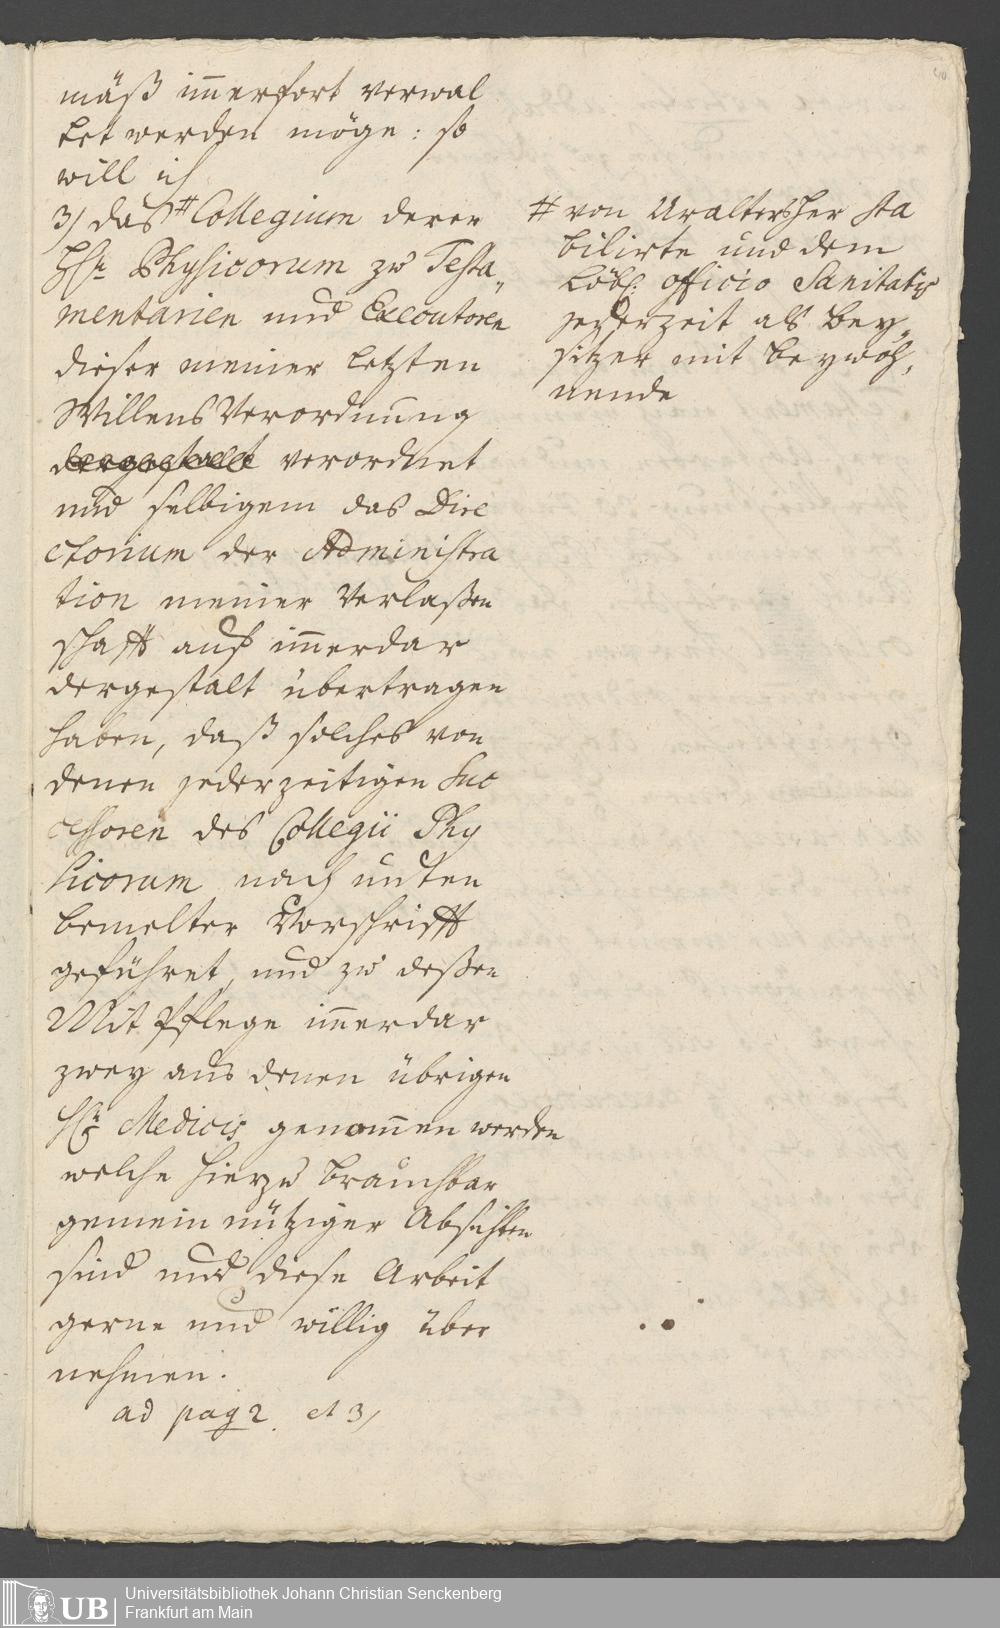 mäß im̅erfort verwal
tet werden möge: so
will ich
3) das # Collegium derer
HH.n Physicorum zu Testa„
mentarien und Executoren
dieser meiner letzten
Willens Verordnung
dergestalt verordnet
und selbigem das Dire
ctorium der Administra
tion meiner Verlaßen
schafft auf im̅erdar
dergestalt übertragen
haben, daß solches von
denen jederzeitigen Suc
cessoren des Collegii Phy
sicorum nach unten
bemelter Vorschrifft
geführet, und zu deßen
Mit Pflege im̅erdar
zwey aus denen übrigen
HH. Medicis genom̅en werden
welche hierzu brauchbar
gemein nütziger Absichten
sind und diese Arbeit
gerne und willig über
nehmen.
ad pag 2. et 3)
# von Uraltersher sta
bilirte und dem
Löbl. officio Sanitatis
jederzeit als Bey„
sitzer mit beywoh„
nende
40
UB
Universitätsbibliothek Johann Christian Senckenberg
Frankfurt am Main